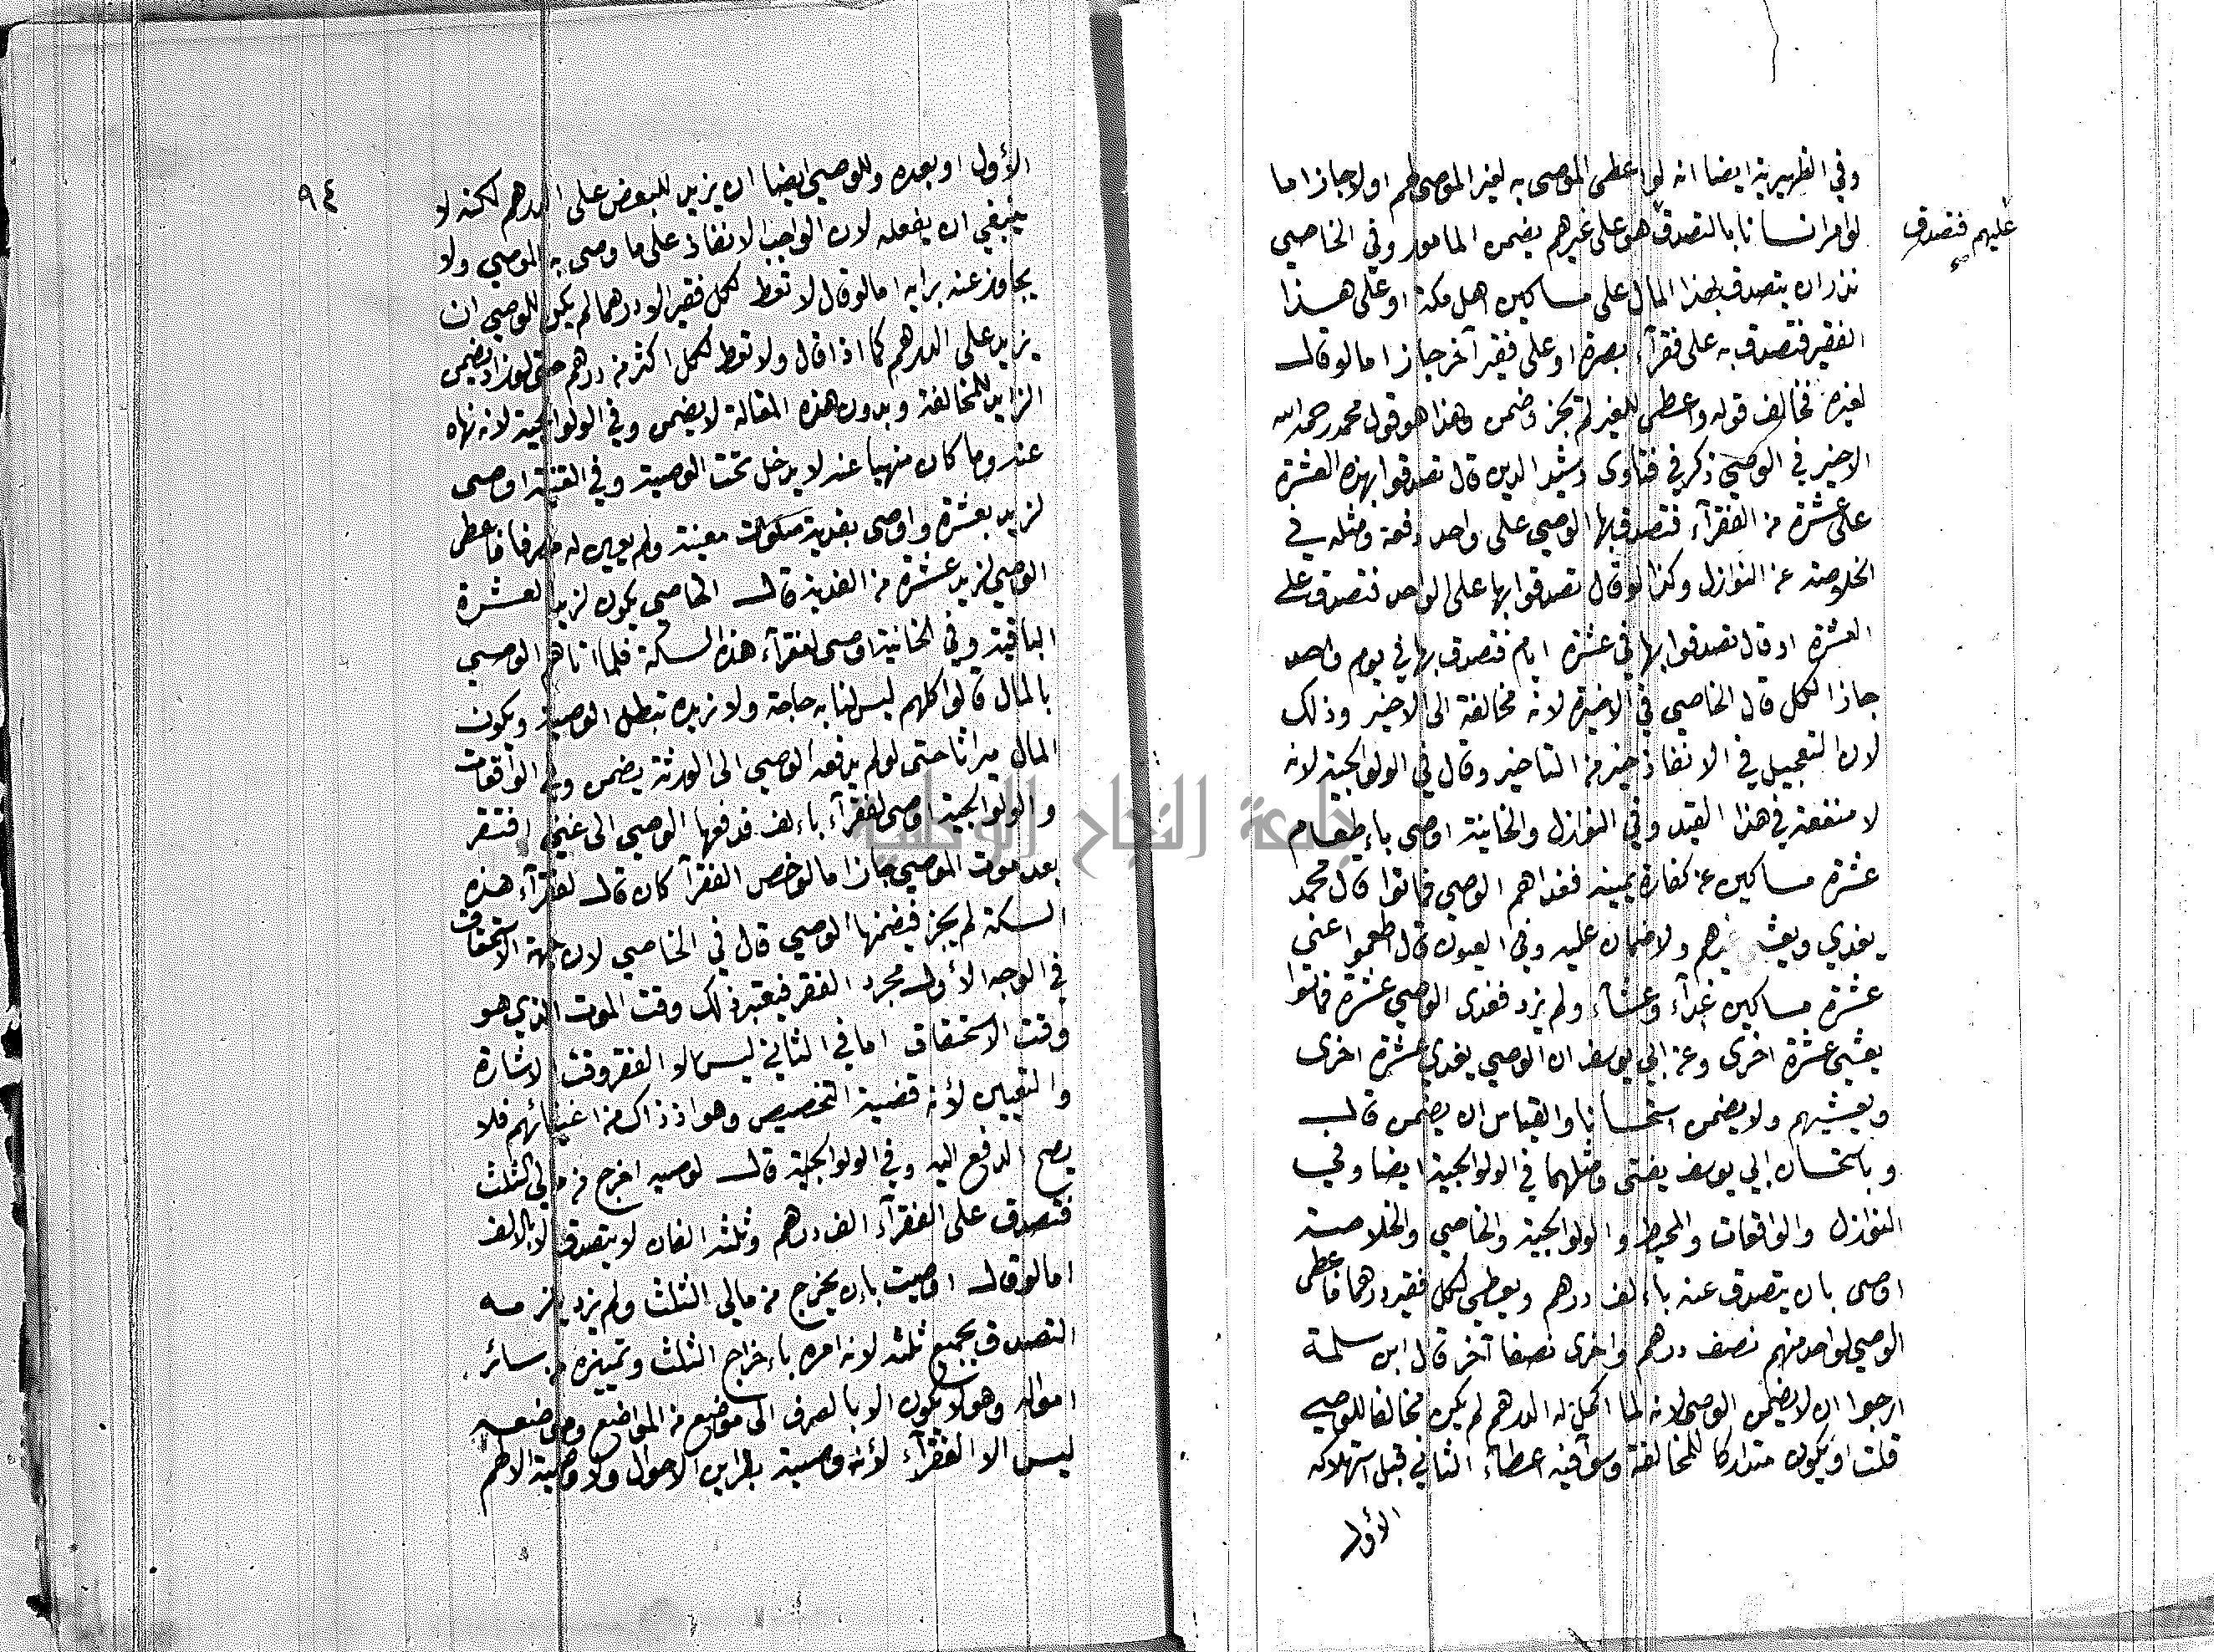 وفي الظهيرية ايضا انه لو اعطى الموصى به لغير الموصى لهم اولا جاز اما
لو امر انسانا بالتصدق هو على غيرهم يضمن المامور وفي الخاصي
عليهم فتصدق صح
نذر ان يتصدق بهذا المال على مساكين اهل مكة او على هذا
الفقير فتصدق به على فقرآء بصرة او على فقير آخر جاز اما لو قال
لغيره فخالف قوله واعطى للغير لم يجز وضمن وهذا هو قول محمد رحمه الله
الاخير في الوصي ذكر في فتاوى رشيد الدين قال تصدقوا بهذه العشرة
على عشرة من الفقرآء فتصدق بها الوصي على واحد دفعة ومثله في
الخلاصة عن النوازل وكذا لو قال تصدقوا بها على الواحد فتصدق على
العشرة او قال تصدقوا بها في عشرة ايام فتصدق بها في يوم واحد
جاز الكل قال الخاصي في الاخيرة لانه مخالفة الى الاخير وذلك
لان التعجيل في الانفاذ خير من التاخير وقال في الولوالجية لانه
لا منفعة في هذا القيد وفي النوازل والخانية اوصى باءطعام
عشرة مساكين عن كفارة يمينه فغداهم الوصي فماتوا قال محمد
يغدي ويعشي غيرهم ولا ضمان عليه وفي العيون قال اطعموا عني
عشرة مساكين غدآء وعشآء ولم يزد فغدى الوصي عشرة فماتوا
يعشي عشرة اخرى وعن ابي يوسف ان الوصي يغدي عشرة اخرى
ويعشيهم ولا يضمن استحسانا والقياس ان يضمن قال
وباستحسان ابي يوسف يفتى ومثلهما في الولوالجية ايضا وفي
النوازل والواقعات والمحيط والولوالجية والخاصي والخلاصة
اوصى بان يتصدق عنه باءلف درهم ويعطي لكل فقير درهما فاعطى
الوصي لواحد منهم نصف درهم واخرى نصفا آخر قال ابن سلمة
ارجوا ان لا يضمن الوصي لانه لما اكمل له الدرهم لم يكن مخالفا للوصي
قلت او يكون متداركا للمخالفة وسوآفيه اعطاء الثاني قبل استهلاكه
الأول
٩٤
الأول او بعده وللوصي ايضا ان يزيد للبعض على الدرهم لكنه لا
ينبغي ان يفعله لان الواجب الانفاذ على ما وصى به الموصي ولا
يجاوز عنه برأيه اما لو قال لا تعط لكل فقير الا درهما لم يكن للوصي ان
يزيد على الدرهم كما اذا قال ولا تعط لكل اكثر من درهم حتى لو زاد يضمن
الزايد للمخالفة وبدون هذه المقالة لا يضمن وفي الولوالجية لانه نهاه
عنه وما كان منهيا عنه لا يدخل تحت الوصية وفي القنية اوصى
لزيد بعشرة واوصى بفدية صلوات معينة ولم يعين له مصرفا فاعطى
الوصي لزيد عشرة من الفدية قال الخاصي يكون لزيد العشرة
الباقية وفي الخانية اوصى لفقرآء هذه السكة فلما اتاهم الوصي
بالمال قالوا كلهم ليس لنا به حاجة ولا نريده تبطل الوصية ويكون
المال ميراثا حتى لو لم يدفعه الوصي الى الورثة يضمن وفي الواقعات
والولوالجية اوصى لفقرآء باءلف فدفعها الوصي الى غني افتقر
بعد موت الموصي جاز اما لو خص الفقرآ كان قال لفقرآء هذه
السكة لم يجز فيضمنها الوصي قال في الخاصي لان جهة الاستحقاق
في الوجه الأول مجرد الفقر فيعتبر ذلك وقت الموت الذي هو
وقت الاستحقاق اما في الثاني ليس الا الفقر وقت الاشارة
والتعيين لأنه قضية التخصيص وهو اذ ذاك من اغنيائهم فلا
يصح الدفع اليه وفي الولوالجية قال لوصيه اخرج من مالي الثلث
فتصدق على الفقرآء الف درهم وثلثه الفان لا يتصدق الا بالالف
اما لو قال اوصيت باءن يخرج من مالي الثلث ولم يزد يلزمه
التصدق بجميع ثلثه لانه امره باءخراج الثلث وتمييزه من سائر
امواله وهو لا يكون الا بالصرف الى موضع من المواضع وموضعه
ليس الا الفقرآء لأنه وصية بقراين الاحوال ولا وصية الا لهم
جامعة النجاح الوطنية